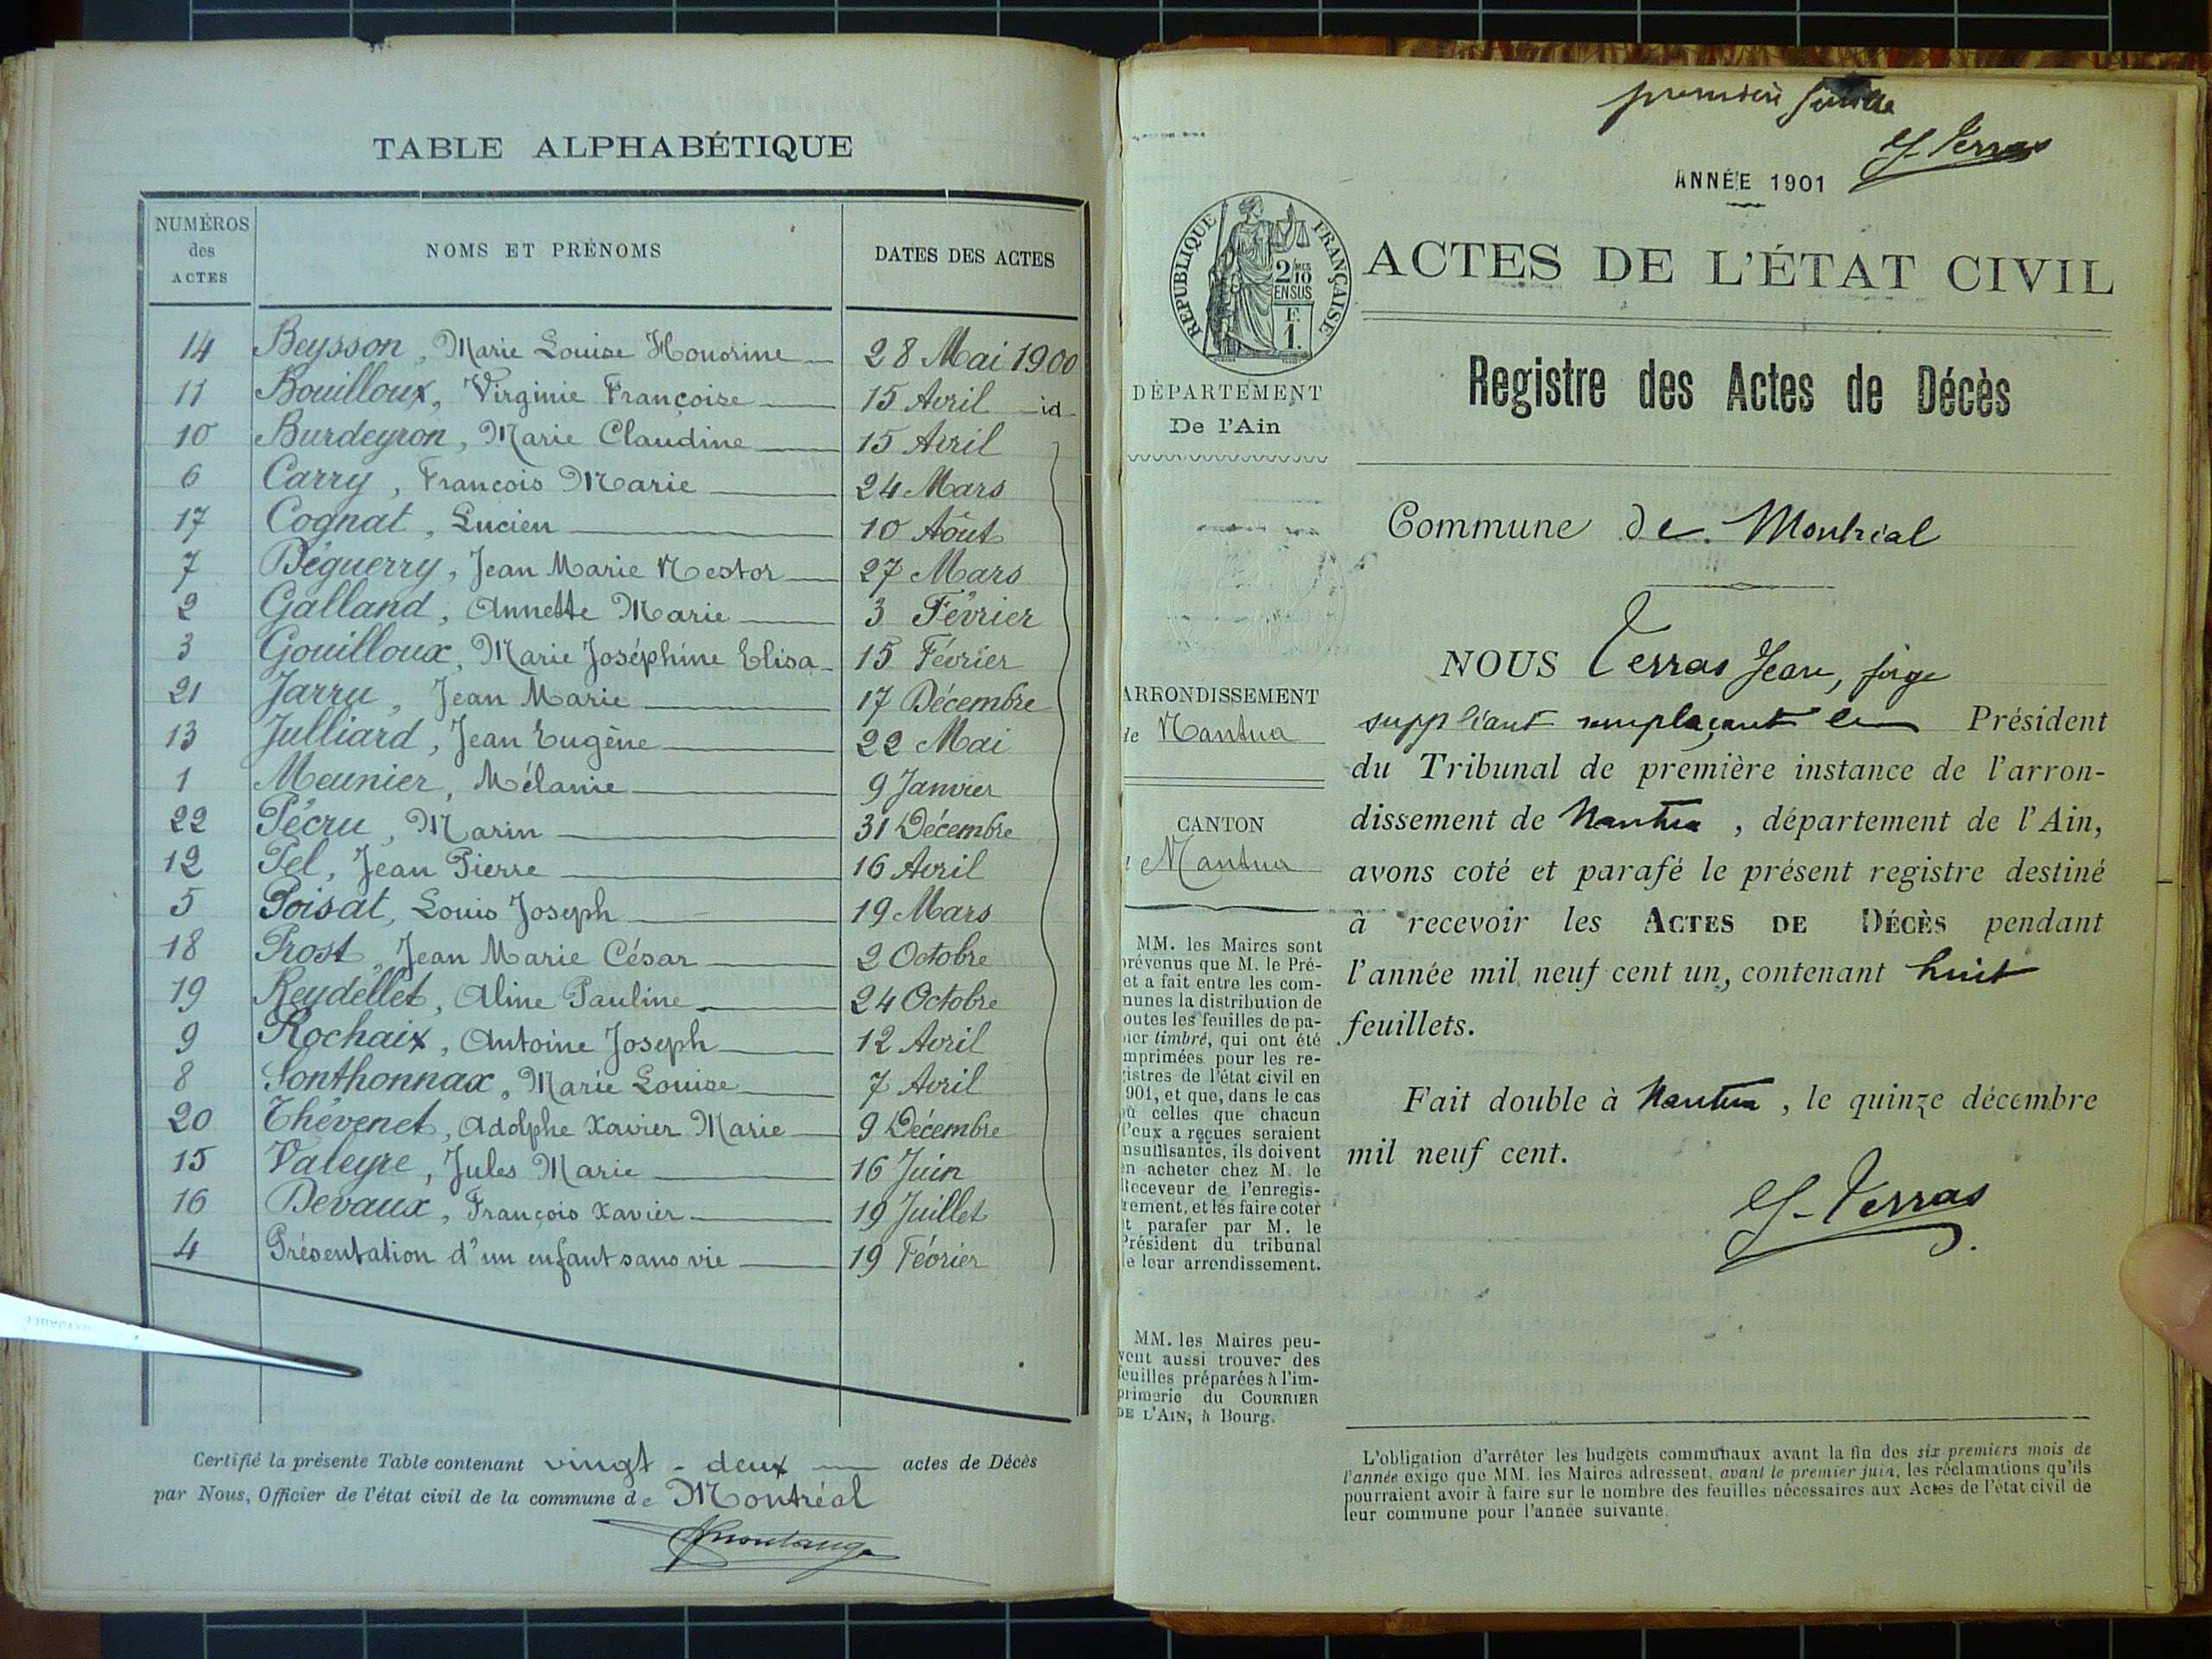 TABLE ALPHABÉTIQUE
NUMÉROS des ACTES NOMS ET PRÉNOMS DATES DES ACTES
14 Beysson, Marie Louise Honorine 28 Mai 1900
11 Bouilloux, Virginie Françoise 15 Avril id
10 Burdeyron, Marie Claudine 15 Avril
6 Carry, François Marie 24 Mars
17 Cognat, Lucien 10 Aôut
7 Déguerry, Jean Marie Nestor 27 Mars
2 Galland, Annette Marie 3 Février
3 Gouilloux, Marie Joséphine Elisa 15 Février
21 Jarru, Jean Marie 17 Décembre
13 Julliard, Jean Eugène 22 Mai
1 Meunier, Mélanie 9 Janvier
22 Pécru, Marin 31 Décembre
12 Pel, Jean Pierre 16 Avril
5 Poisat, Louis Joseph 19 Mars
18 Prost, Jean Marie César 2 Octobre
19 Reydellet, Aline Pauline 24 Octobre
9 Rochaix, Antoine Joseph 12 Avril
8 Sonthonnax, Marie Louise 7 Avril
20 Thévenet, Adolphe Xavier Marie 9 Décembre
15 Valeyre, Jules Marie 16 Juin
16 Devaux, François Xavier 19 Juillet
4 Présentation d'un enfant sans vie 19 Février
Certifié la présente Table contenant vingt-deux actes de Décès
par Nous, Officier de l'état civil de la commune de Montréal
première feuille
J. Terras
ANNÉE 1901
RÉPUBLIQUE FRANÇAISE
2/10
EN SUS
F.
1.
ACTES DE L'ÉTAT CIVIL
Registre des Actes de Décès
DÉPARTEMENT
De l'Ain
Commune de Montréal
ARRONDISSEMENT
de Nantua
CANTON
Nantua
NOUS Terras Jean, juge
suppléant remplaçant le Président
du Tribunal de première instance de l'arron-
dissement de Nantua, département de l'Ain,
avons coté et parafé le présent registre destiné
à recevoir les ACTES DE DÉCÈS pendant
l'année mil neuf cent un, contenant huit
feuillets.
Fait double à Nantua, le quinze décembre
mil neuf cent.
J. Terras
MM. les Maires sont
prévenus que M. le Pré-
et a fait entre les com-
munes la distribution de
toutes les feuilles de pa-
pier timbré, qui ont été
imprimées pour les re-
gistres de l'état civil en
1901, et que, dans le cas
où celles que chacun
d'eux a reçues seraient
insuffisantes, ils doivent
en acheter chez M. le
Receveur de l'enregis-
trement, et les faire coter
et parafer par M. le
Président du tribunal
de leur arrondissement.
MM. les Maires peu-
vent aussi trouver des
feuilles préparées à l'im-
primerie du COURRIER
DE L'AIN, à Bourg.
L'obligation d'arrêter les budgets communaux avant la fin des six premiers mois de
l'année exige que MM. les Maires adressent, avant le premier juin, les réclamations qu'ils
pourraient avoir à faire sur le nombre des feuilles nécessaires aux Actes de l'état civil de
leur commune pour l'année suivante.